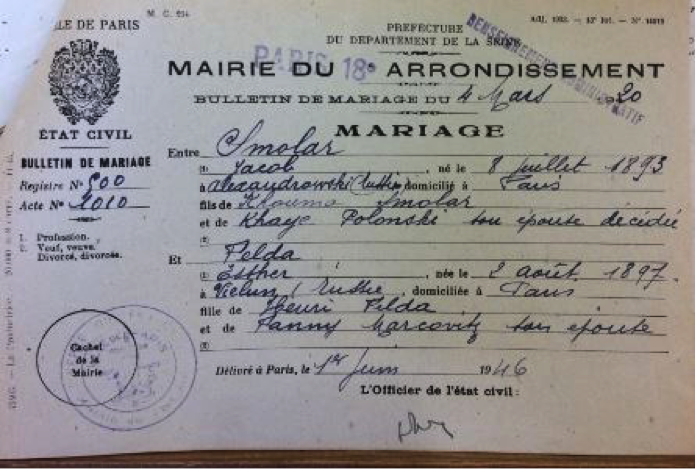 LE DE PARIS
M. C. 654
Adj. 1938. — 12e lot. — N° 16819
PRÉFECTURE
DU DÉPARTEMENT DE LA SEINE
RENSEIGNEMENT ADMINISTRATIF
PARIS 18e
MAIRIE DU e ARRONDISSEMENT
BULLETIN DE MARIAGE DU 4 Mars 20
MARIAGE
ÉTAT CIVIL
BULLETIN DE MARIAGE
Registre N° 500
Acte N° 1010
1. Profession.
2. Veuf, veuve.
Divorcé, divorcée.
Entre Smolar
(1) Jacob, né le 8 juillet 1893
à alexandrowski (Russie) domicilié à Paris
fils de Smolar
et de Khaye Polonski son épouse décédée
(2)
Et Pelda
(1) Esther, née le 2 août 1897
à Vielun / Russie, domiciliée à Paris
fille de Henri Pelda
et de Fanny Marcovitz son épouse
(2)
Cachet
de la
Mairie
Délivré à Paris, le 1er Juin 1946
L'Officier de l'état civil :